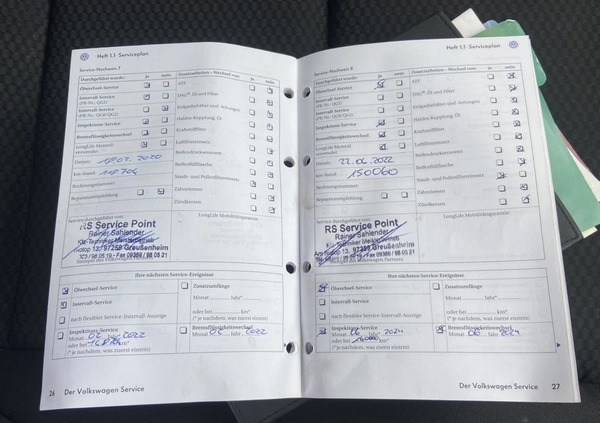 Heft 1.1 Serviceplan
Service-Nachweis 7
Durchgeführt wurde: ja nein
Ölwechsel-Service
Intervall-Service
(PR-Nr.: QG1)
Intervall-Service
(PR-Nr.: QG0/QG2)
Inspektions-Service
Bremsflüssigkeitswechsel
LongLife Motoröl
verwendet
Datum: 18.02.2020
km-Stand:
Rechnungsnummer
Reparaturempfehlung
Zusatzarbeiten – Wechsel von: ja nein
ATF
DSG®-Öl und Filter
Erdgasbehälter und -leitungen
Haldex-Kupplung, Öl
Kraftstofffilter
Luftfiltereinsatz
Reifendrucksensoren
Reifenfüllflasche
Staub- und Pollenfiltereinsatz
Zahnriemen
Zündkerzen
LongLife Mobilitätsgarantie
Service durchgeführt von:
RS Service Point
Rainer Sahlender
Kfz-Techniker Meisterbetrieb
13, 97259 Greußenheim
Fax 09369 / 98 05 21
Stempel des Volkswagen Partners
Ihre nächsten Service-Ereignisse
Ölwechsel-Service
Intervall-Service
nach flexibler Service-Intervall-Anzeige
Inspektions-Service
Monat 02 Jahr 2022
oder bei
(* je nachdem, was zuerst eintritt)
Zusatzumfänge
Monat Jahr*
oder bei km*
(* je nachdem, was zuerst eintritt)
Bremsflüssigkeitswechsel
Monat 02 Jahr 2022
26 Der Volkswagen Service
Heft 1.1 Serviceplan
Service-Nachweis 8
Durchgeführt wurde: ja nein
Ölwechsel-Service
Intervall-Service
(PR-Nr.: QG1)
Intervall-Service
(PR-Nr.: QG0/QG2)
Inspektions-Service
Bremsflüssigkeitswechsel
LongLife Motoröl
verwendet
Datum: 22.06.2022
km-Stand: 150060
Rechnungsnummer
Reparaturempfehlung
Zusatzarbeiten – Wechsel von: ja nein
ATF
DSG®-Öl und Filter
Erdgasbehälter und -leitungen
Haldex-Kupplung, Öl
Kraftstofffilter
Luftfiltereinsatz
Reifendrucksensoren
Reifenfüllflasche
Staub- und Pollenfiltereinsatz
Zahnriemen
Zündkerzen
LongLife Mobilitätsgarantie
Service durchgeführt von:
RS Service Point
Rainer Sahlender
Kfz-Techniker Meisterbetrieb
13, 97259 Greußenheim
Fax 09369 / 98 05 21
Stempel des Volkswagen Partners
Ihre nächsten Service-Ereignisse
Ölwechsel-Service
Intervall-Service
nach flexibler Service-Intervall-Anzeige
Inspektions-Service
Monat 06 Jahr 2024
oder bei km*
(* je nachdem, was zuerst eintritt)
Zusatzumfänge
Monat Jahr*
oder bei km*
(* je nachdem, was zuerst eintritt)
Bremsflüssigkeitswechsel
Monat 06 Jahr 2024
Der Volkswagen Service 27